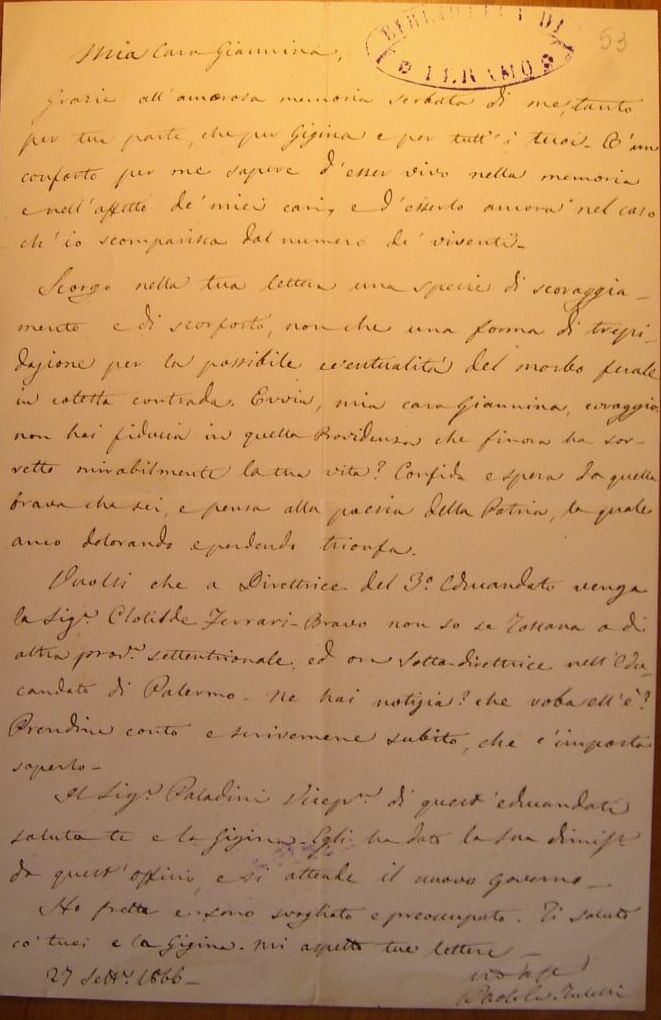 BIBLIOTECA DI
TERAMO
53
Mia Cara Giannina,
Grazie all'amorosa memoria serbata di me, tanto
per tua parte, che per Gigina e per tutt' i tuoi. È un
conforto per me sapere d'esser vivo nella memoria
e nell'affetto de' miei cari, e d'esserlo ancora nel caso
ch'io scomparissa dal numero de' viventi.
Scorgo nella tua lettera una specie di scoraggia-
mento e di sconforto, non che una forma di trepi-
dazione per la possibile eventualità del morbo ferale
in cotesta contrada. Evvia, mia cara Giannina, coraggio:
non hai fiducia in quella Provvidenza che finora ha sor-
retto mirabilmente la tua vita? Confida e spera da quella
brava che sei, e pensa alla poesia della Patria, la quale
anco dolorando e perdendo trionfa.
Vuolsi che a Direttrice del 3º Educandato venga
la Sigª Clotilde Ferrari-Bravo non so se Toscana o di
altra prov.ª settentrionale, ed ora Sotto-direttrice nell'Edu-
candato di Palermo. Ne hai notizia? che roba ell'è?
Prendine conto e scrivemene subito, che c'importa
saperlo-
Il Sigr. Paladini Vicepr. di quest'educandati
saluta te e la Gigina. Egli ha dato la sua dimiss.
da quest'officio, e si attende il nuovo governo-
Ho fretta e sono svogliato e preoccupato. Ti saluto
co' tuoi e la Gigina. Mi aspetto tue lettere-
27 Sett. 1866-